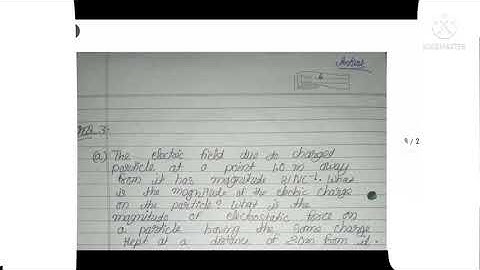 KINEMASTER
Ankur
6
NB. 3.
(a) The electric field due to charged
particle at a point 1.0 m away
from it has magnitude 81NC⁻¹. What
is the magnitude of the electric charge
on the particle? What is the
magnitude of electrostatic force on
a particle having the same charge
kept at a distance of 2.0m from it.
1 / 2